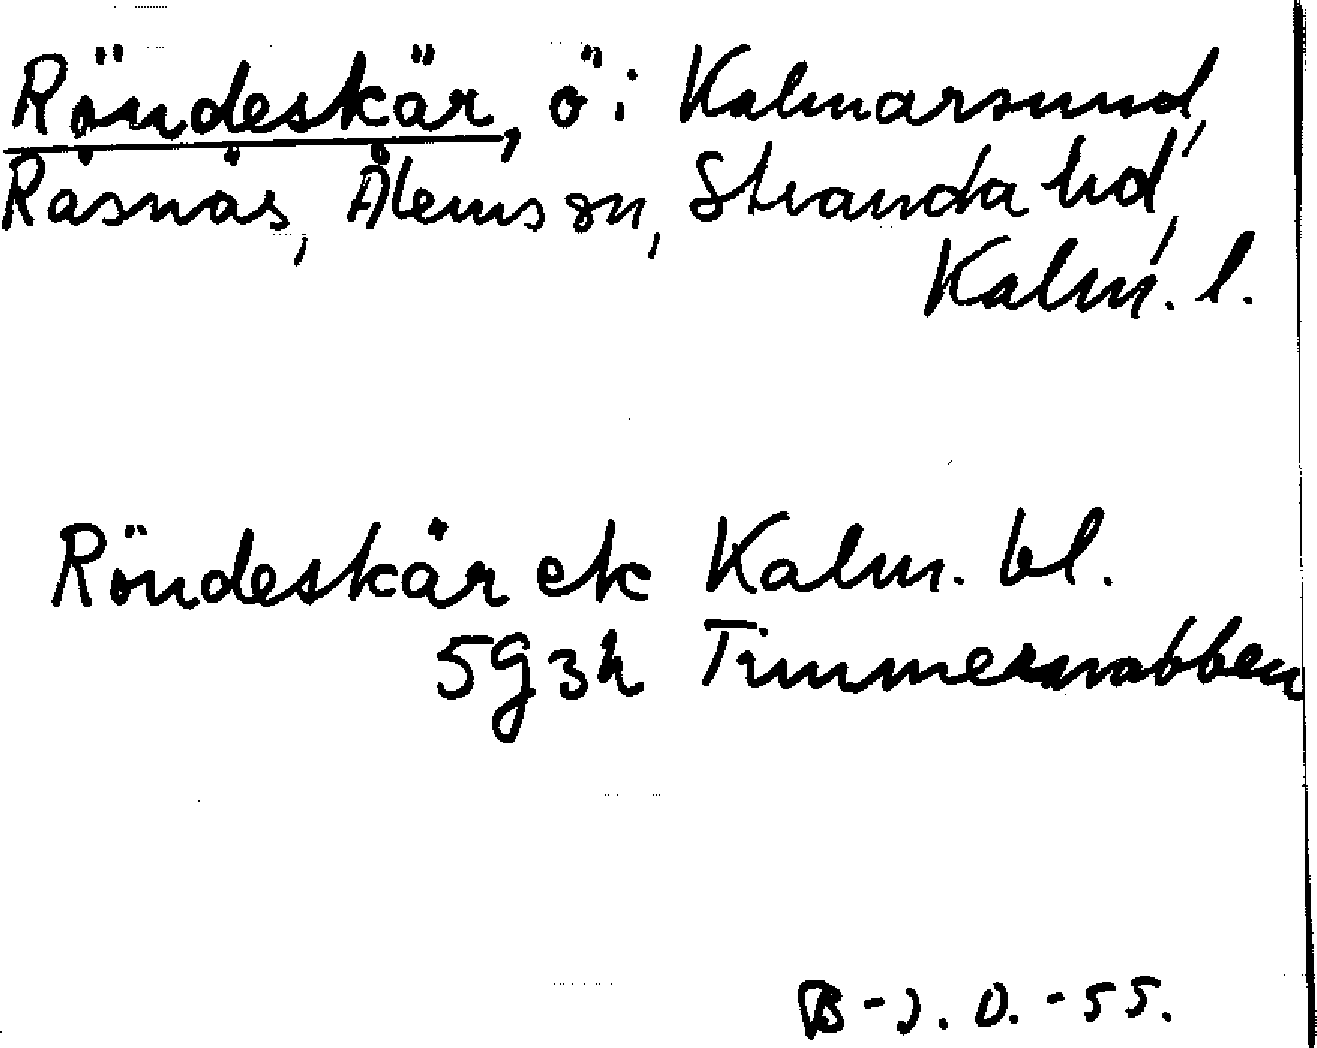 Röndeskär, ö i Kalmarsund,
Råsnäs, Ålems sn, Stranda hd,
Kalm. l.
Röndeskär ek Kalm. bl.
5g3h Timmernabben
B-J. O. -55.